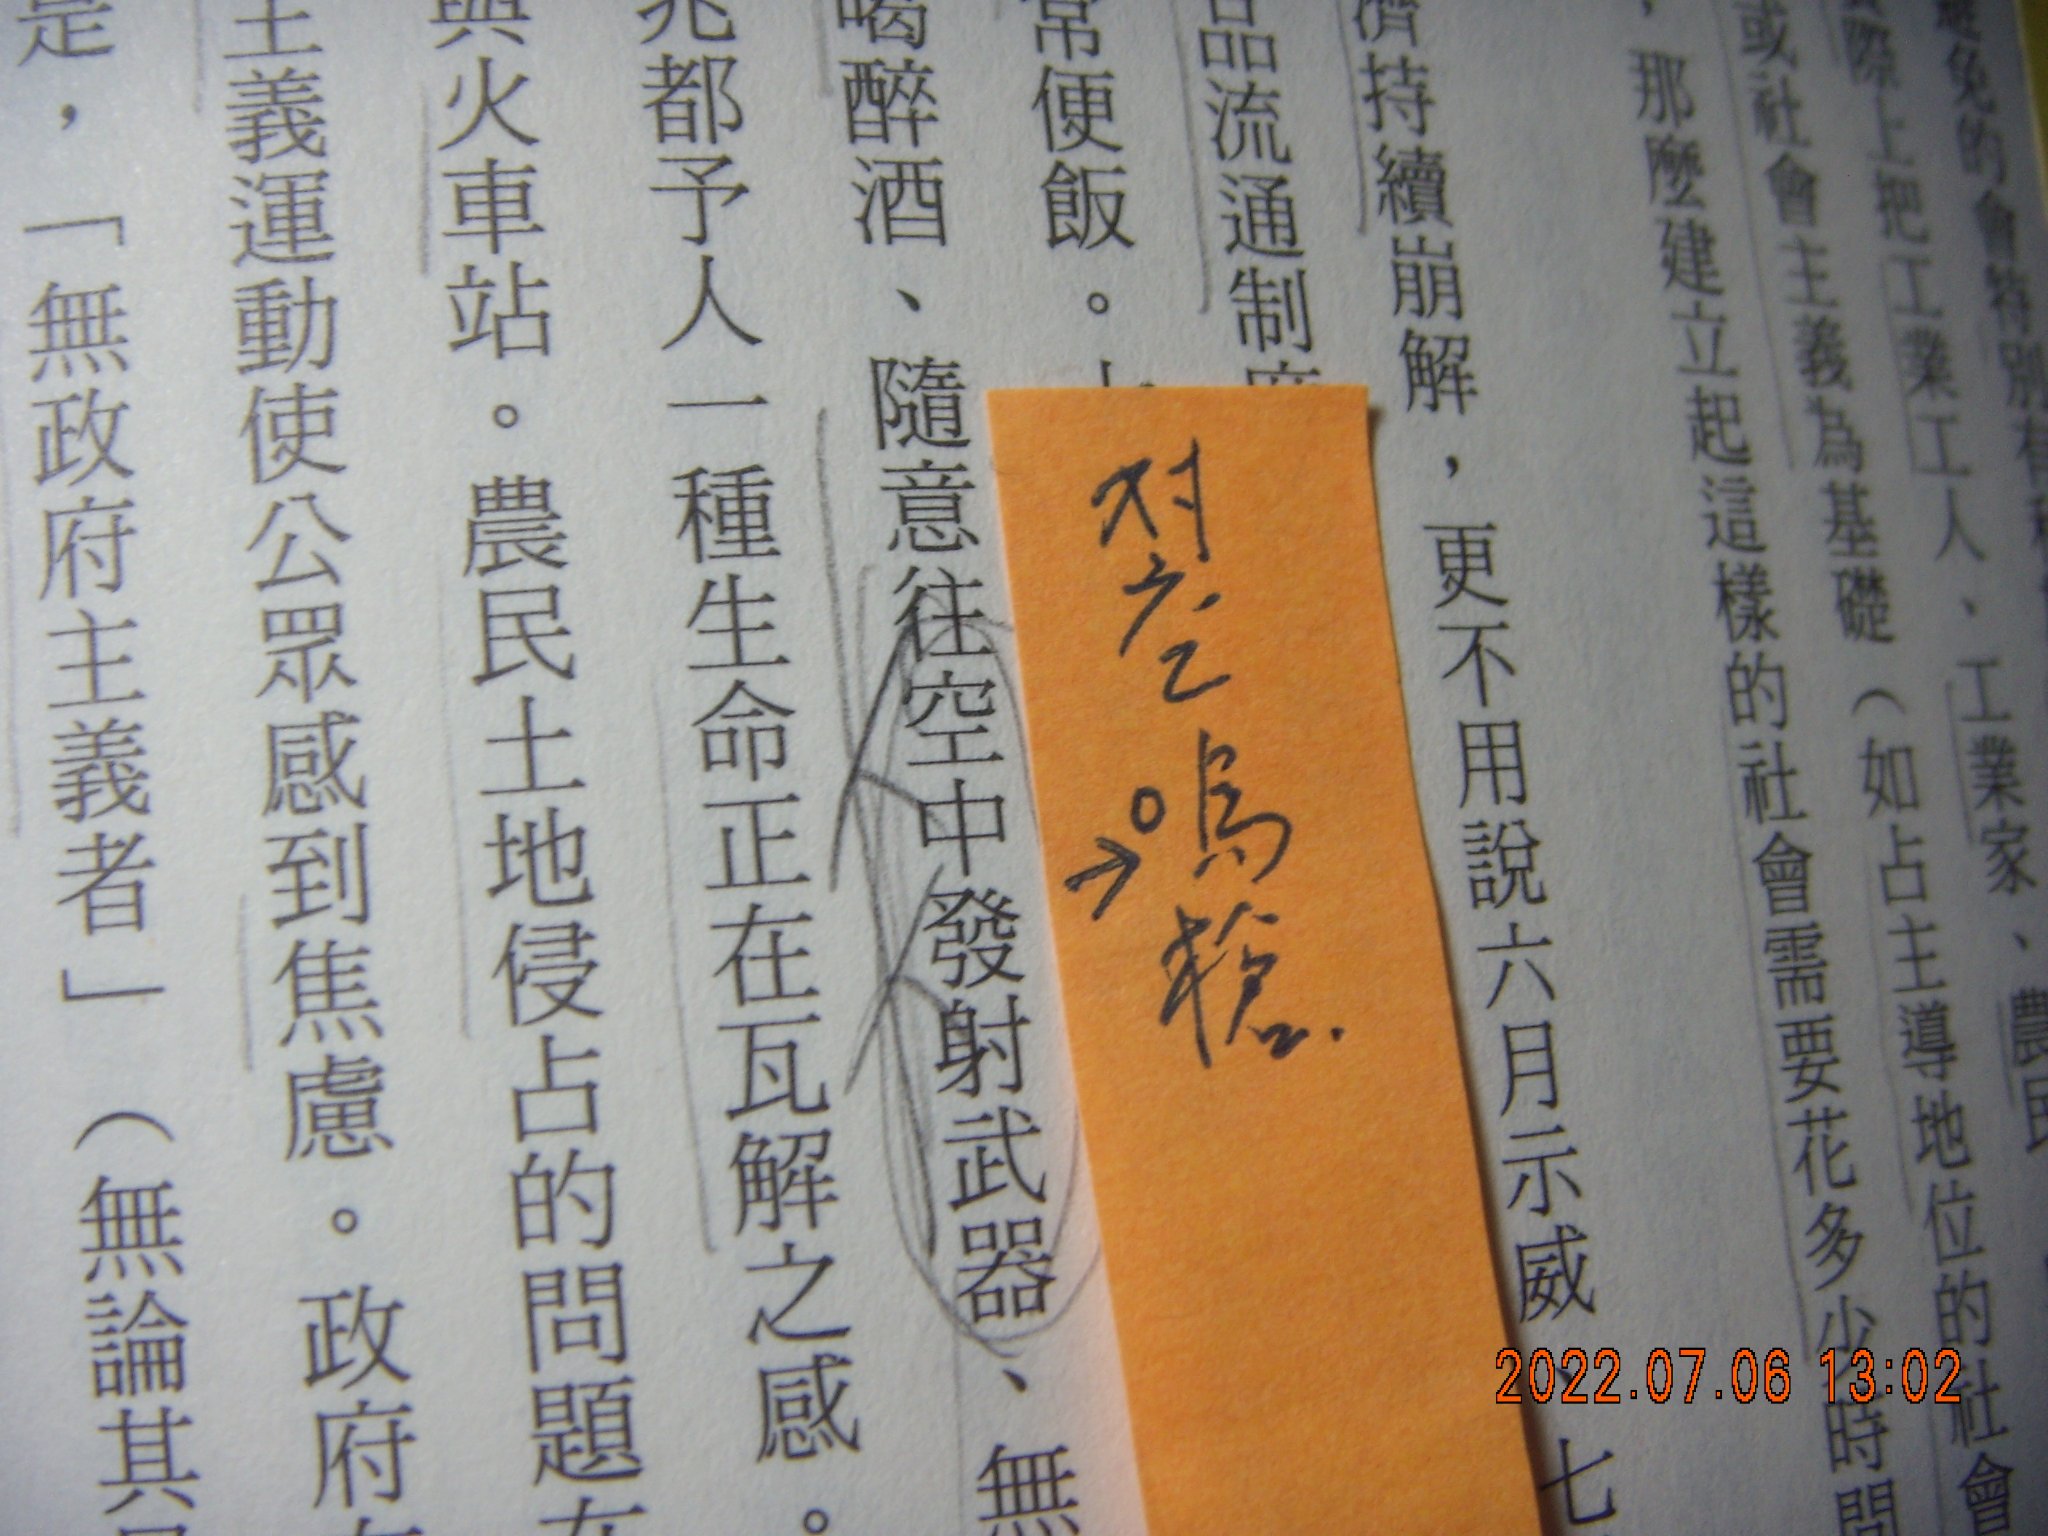 免的會特別有
際上把工業工人、工業家、農民
或社會主義為基礎（如占主導地位的社會
，那麼建立起這樣的社會需要花多少時間
濟持續崩解，更不用說六月示威、七
品流通制
常便飯。
喝醉酒、隨意往空中發射武器、無
兆都予人一種生命正在瓦解之感。
與火車站。農民土地侵占的問題在
主義運動使公眾感到焦慮。政府
是，「無政府主義者」（無論其
对空
鳴槍.
2022.07.06 13:02